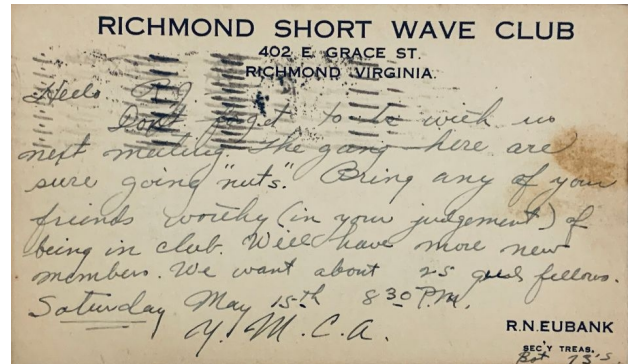 RICHMOND SHORT WAVE CLUB
402 E. GRACE ST.
RICHMOND VIRGINIA.
Hello
Don't forget to be with us
next meeting. The gang here are
sure going "nuts". Bring any of your
friends worthy (in your judgement) of
being in club. Will have more new
members. We want about 25 good fellows.
Saturday May 15th 830 P.M.
Y. M. C. A.
R.N.EUBANK
SEC'Y TREAS.
73's.